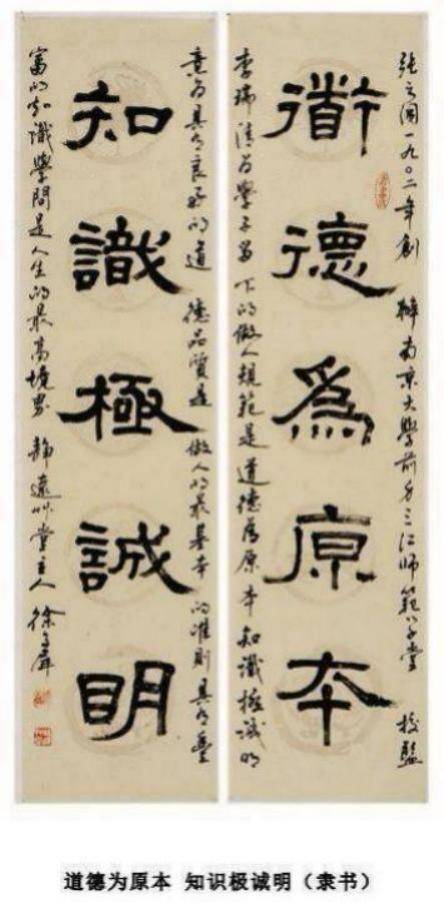 張之洞一九〇二年創 辦南京大學前身三江師範學堂 校監
衟德為原本
李瑞清為學子留下的做人規範是道德為原本知識極誠明
意為具有良好的道德品質是做人的最基本的准則具有豐
知識極誠明
富的知識學問是人生的最高境界 靜遠草堂主人徐
道德为原本 知识极诚明（隶书）